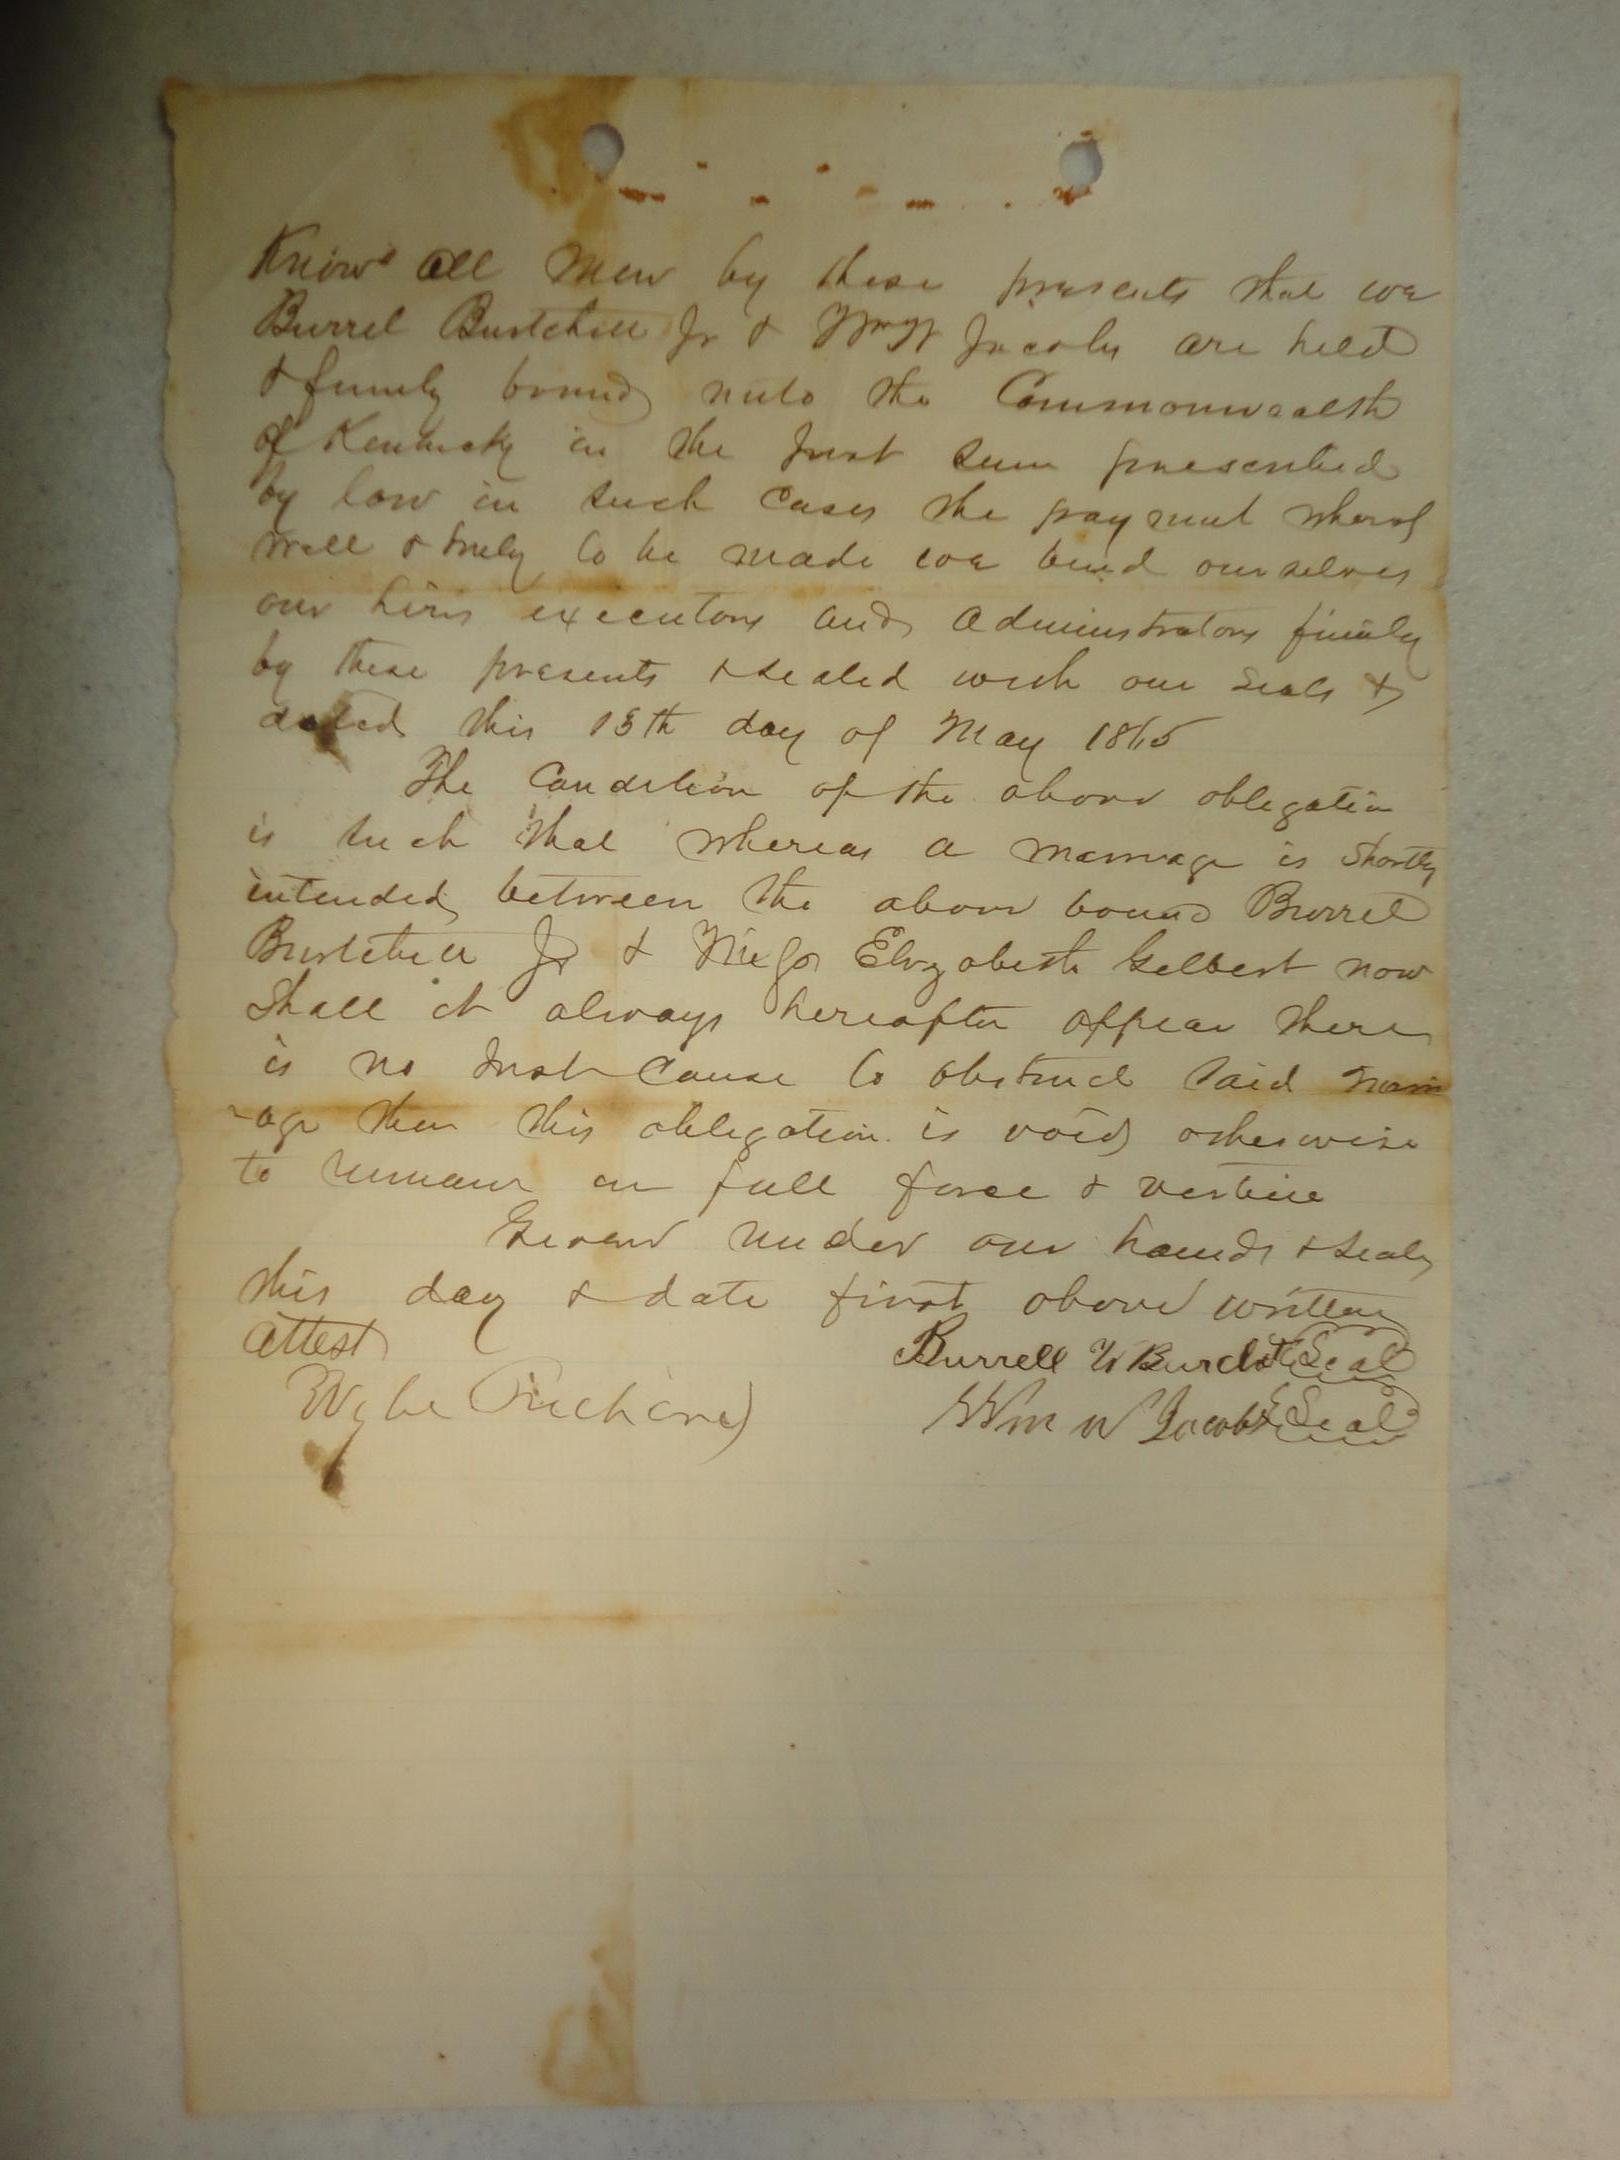 Know all Men by these presents that we
Burrel Burtchell Jr & Wm W Jacobs are held
& firmly bound unto the Commonwealth
of Kentucky in the Just sum prescribed
by law in such cases the payment wherof
well & truly to be made we bind ourselves
our heirs executors and administrators firmly
by these presents & sealed with our seals &
dated this 13th day of May 1865
The Condition of the above obligation
is such that whereas a marriage is shortly
intended between the above bound Burrel
Burtchell Jr & Miss Elizabeth Gilbert now
shall it always hereafter appear there
is no Just Cause to obstruct said marri
-age then this obligation is void otherwise
to remain in full force & vertue
Given under our hands & seals
this day & date first above written
Attest
Burrell W Seal
Wm W Jacobs Seal